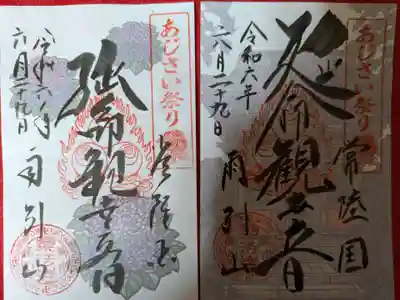 あじさい祭り
常陸国
延命観音
令和六年
六月二十九日
雨引山
あじさい祭り
常陸国
延命観音
令和六年
六月二十九日
雨引山